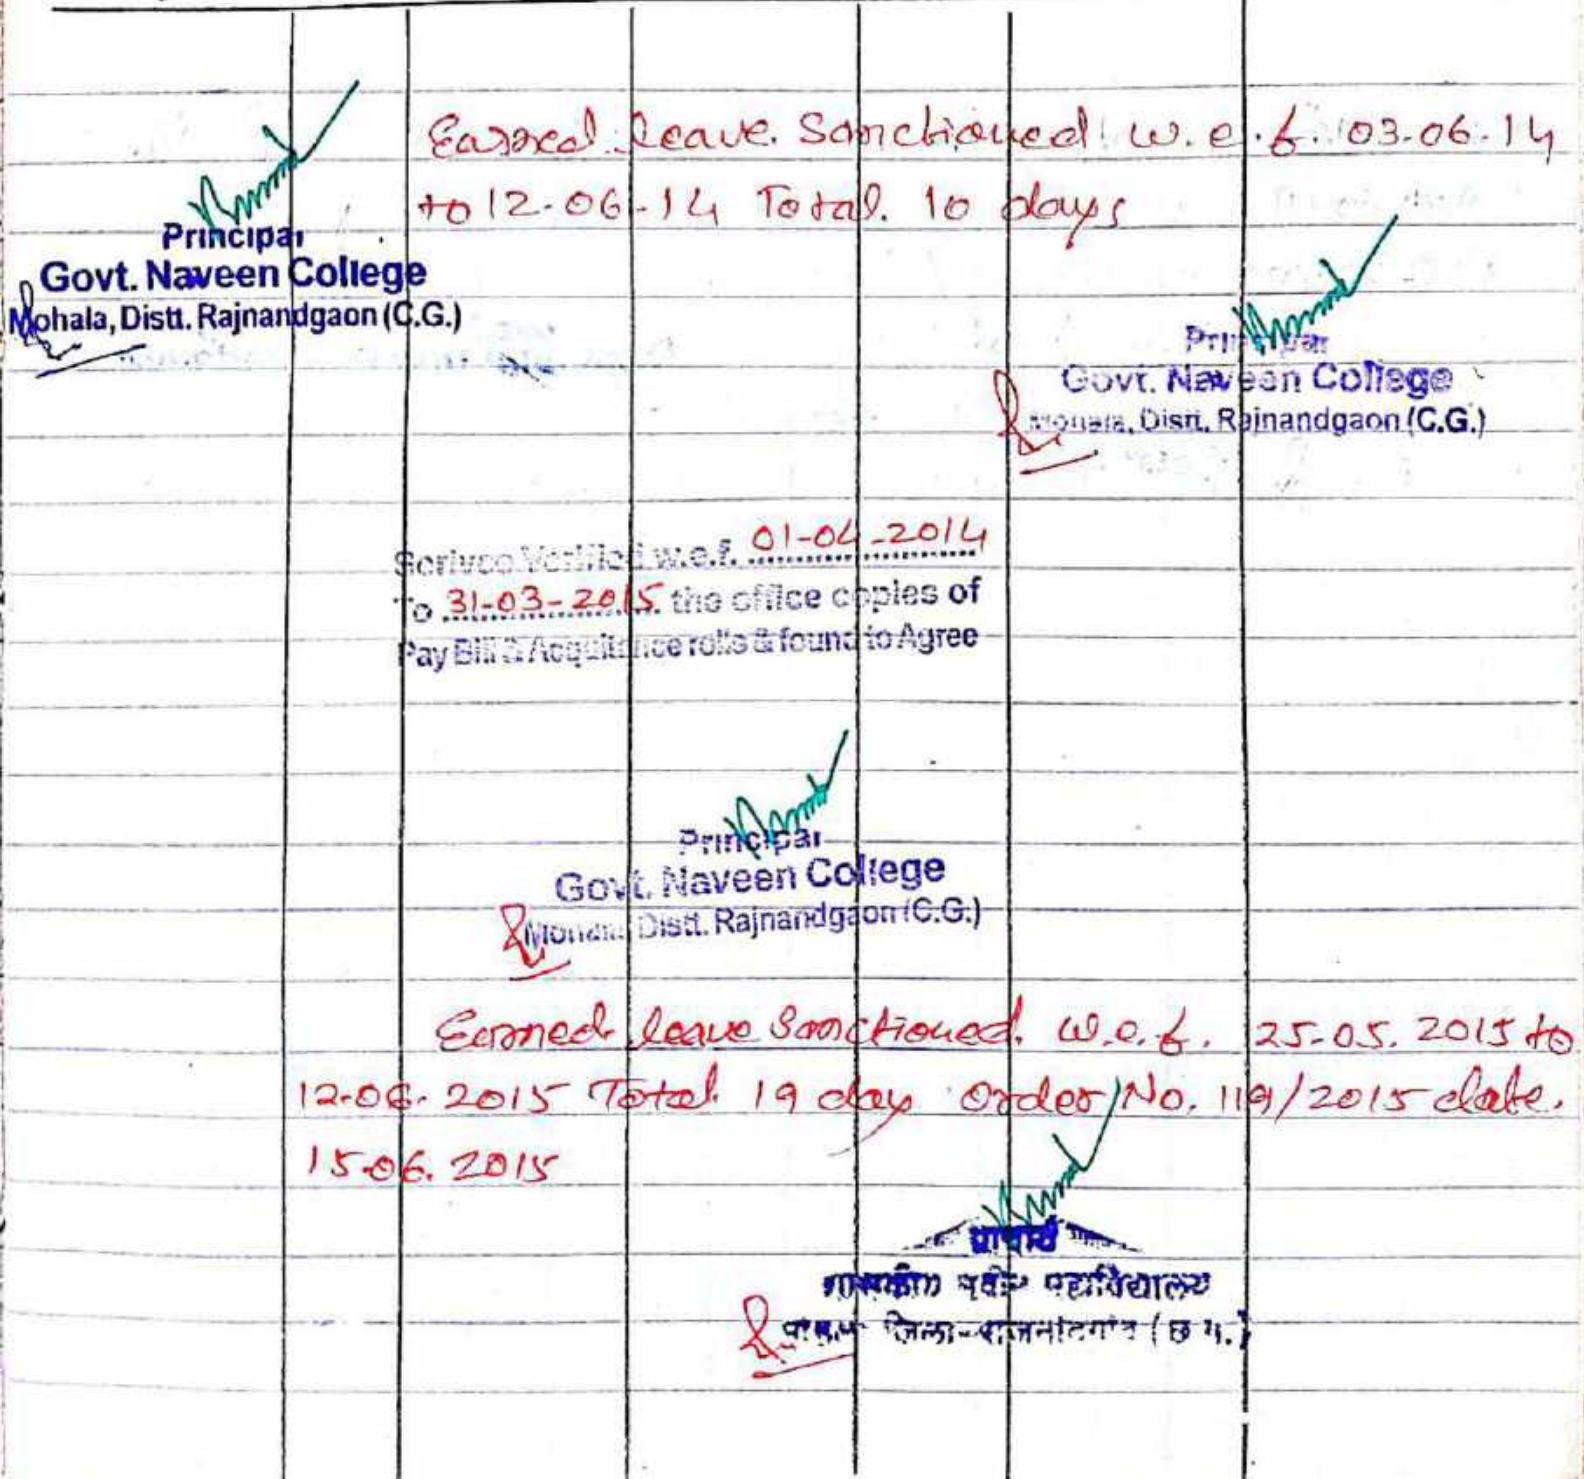 Earned leave. Sanctioned w.e.f. 03-06-14
to 12-06-14 Total. 10 days
Principal
Govt. Naveen College
Mohala, Distt. Rajnandgaon (C.G.)
Principal
Govt. Naveen College
Mohala, Distt. Rajnandgaon (C.G.)
Service Verified w.e.f. 01-04-2014
To 31-03-2015 the office copies of
Pay Bill & Acquittance rolls & found to Agree
Principal
Govt. Naveen College
Mohala, Distt. Rajnandgaon (C.G.)
Earned leave Sanctioned. W.e.f. 25-05. 2015 to
12-06. 2015 Total 19 day order No. 119/2015 date.
15-06. 2015
प्राचार्य
शासकीय नवीन महाविद्यालय
जिला-राजनांदगांव (छ.ग.)